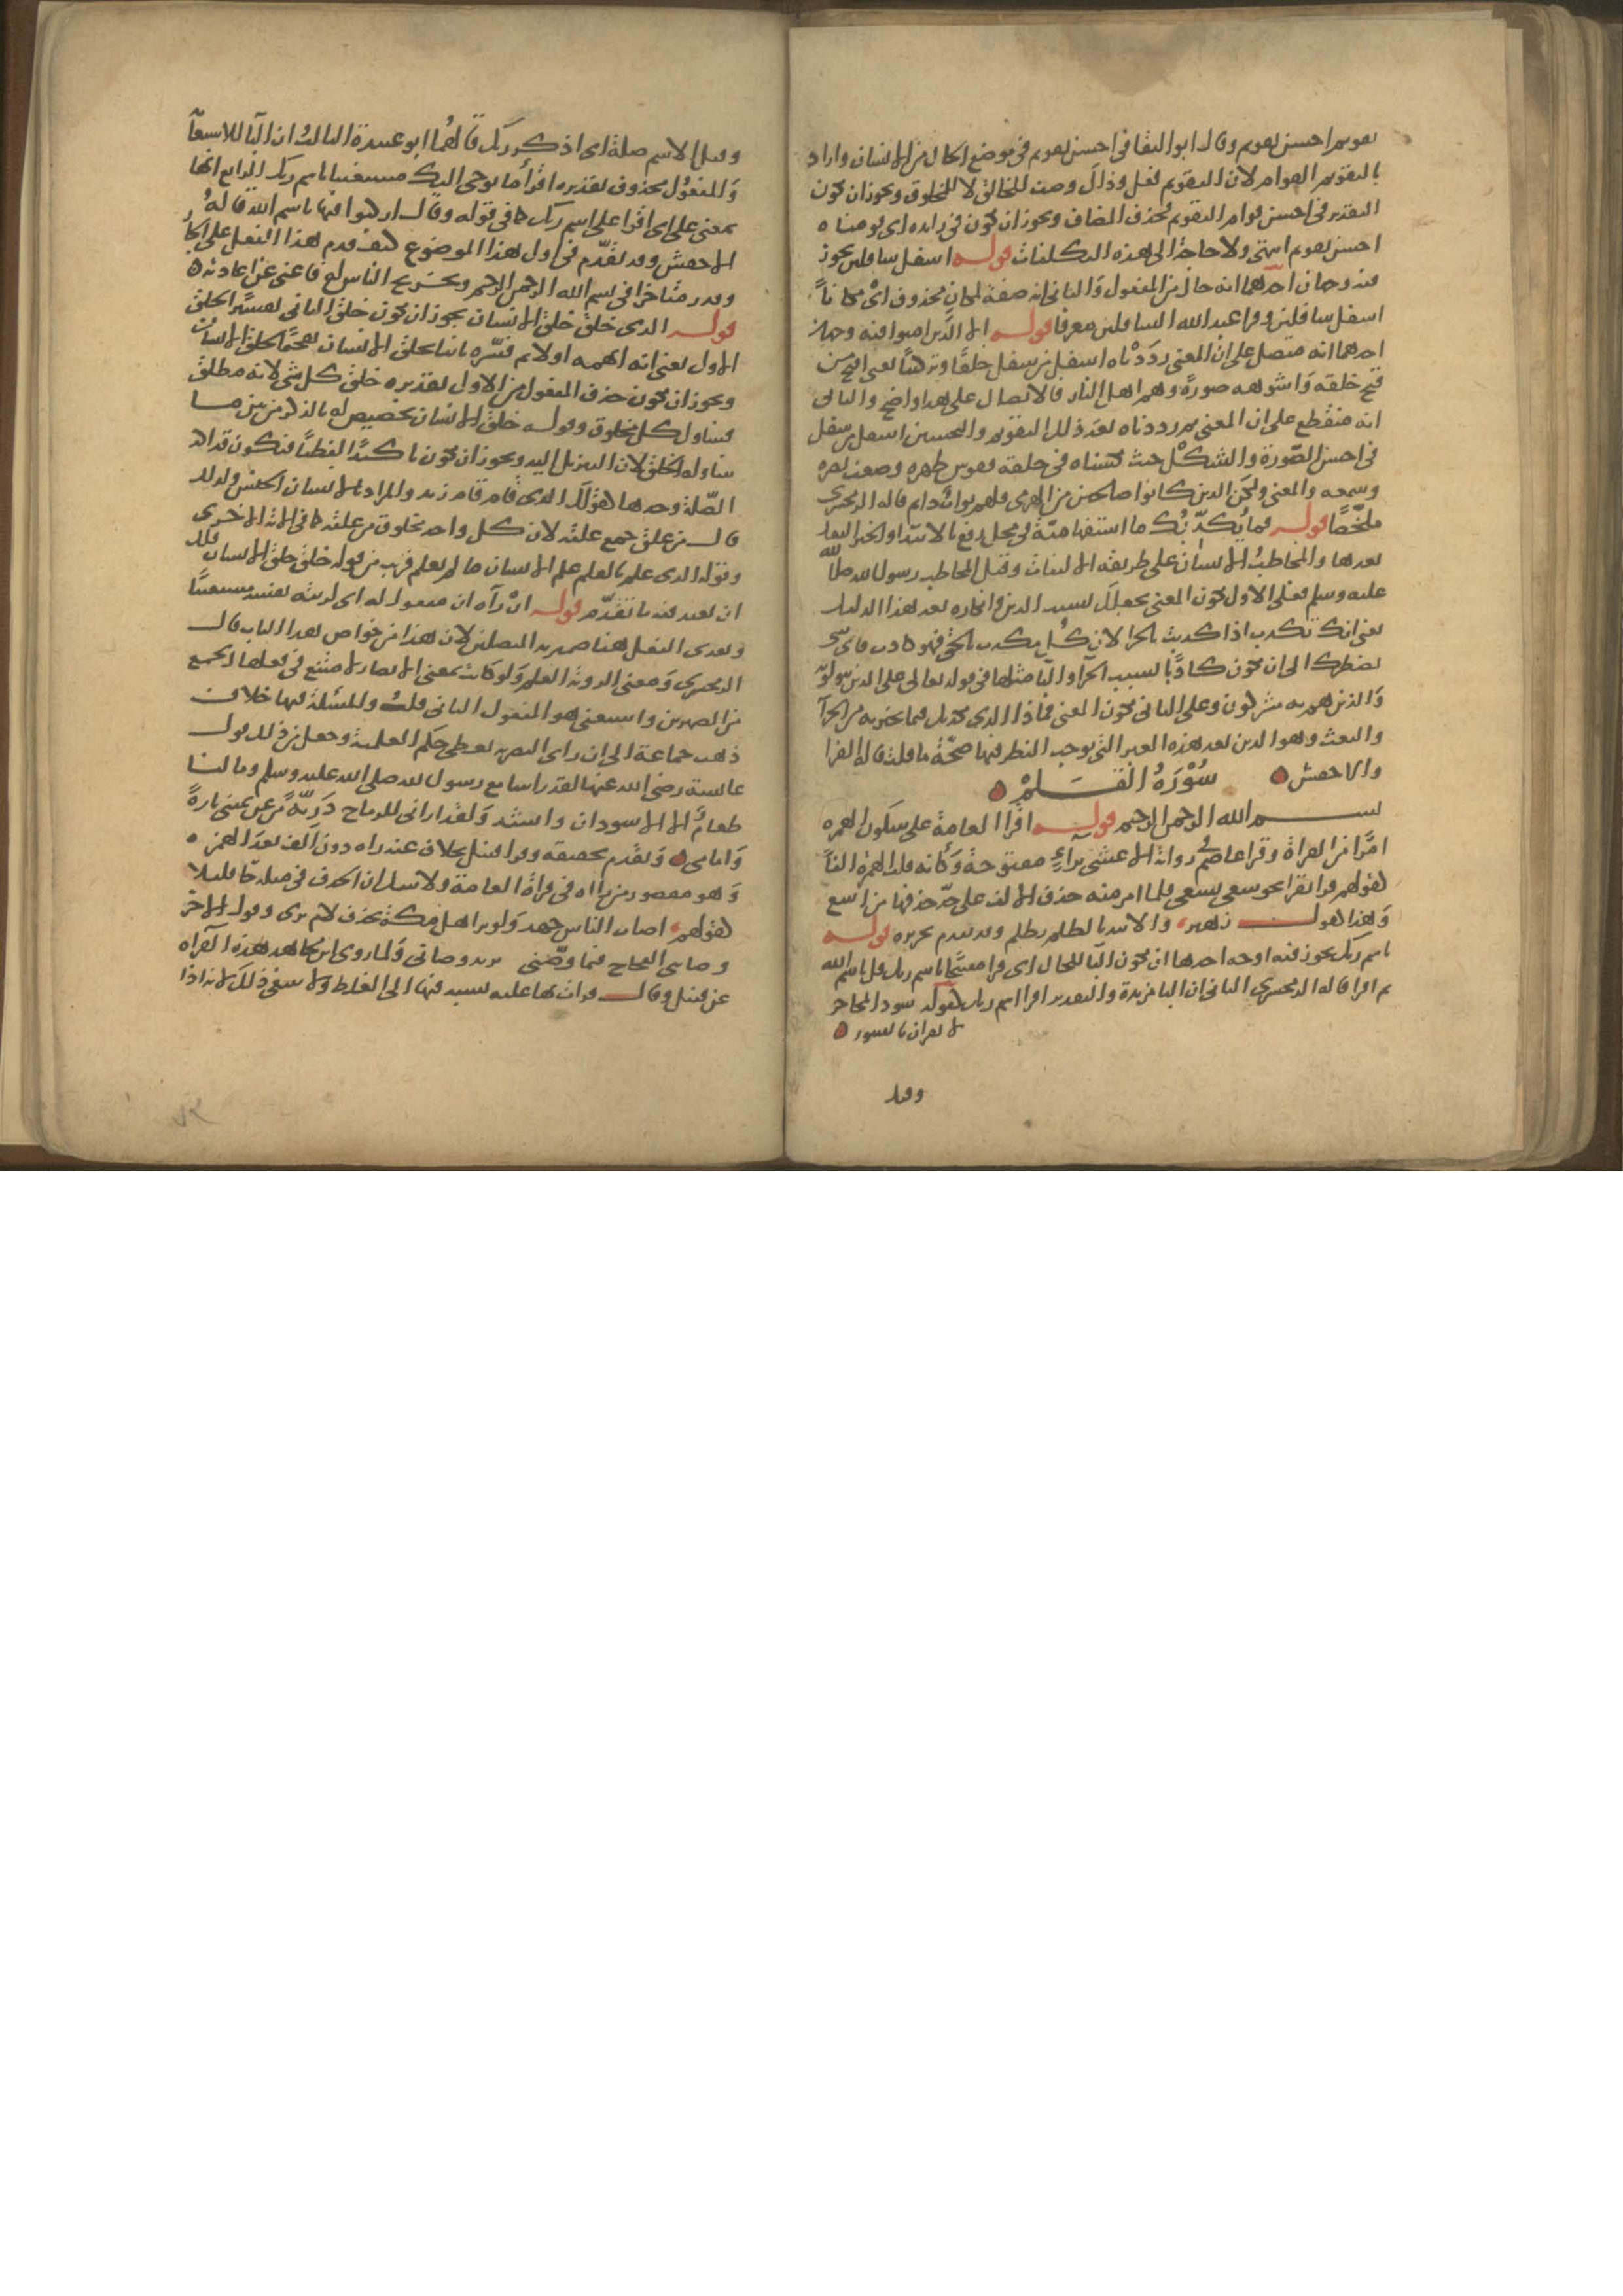 تقويم احسن تقويم وقال ابو البقا في احسن تقويم في موضع الحال من الانسان واراد
بالتقويم القوام لان التقويم فعل وذاك وصف للخالق لا للمخلوق ويجوز ان يكون
التقدير في احسن قوام التقويم فحذف المضاف ويجوز ان تكون في زايده اى قومناه
احسن تقويم انتهى ولا حاجة الى هذه التكلفات قوله اسفل سافلين يجوز
فيه وجهان احدهما انه حال من المفعول والثاني انه صفة لمكان محذوف اى مكانا
اسفل سافلين وقرا عبد الله السافلين معرفا قوله الا الذين امنوا فيه وجهان
احدهما انه متصل على ان المعنى رددناه اسفل من سفل خلقا وتركيبا يعنى اقبح من
قبح خلقه واشوهه صورة وهم اهل النار فالاتصال على هذا واضح والثانى
انه منقطع على ان المعنى ثم رددناه بعد ذلك التقويم والتحسين اسفل من سفل
فى احسن الصورة والشكل حيث نكسناه فى خلقه فقوس ظهره وضعف بصره
وسمعه والمعنى ولكن الذين كانوا صالحين من الهرمى فلهم ثواب دايم قاله الزمخشرى
ملخصا قوله فما يكذبك ما استفهامية فى محل رفع بالابتدا والخبر الفعل
بعدها والمخاطب الانسان على طريقة الالتفات وقيل المخاطب رسول الله صلى الله
عليه وسلم فعلى الاول يكون المعنى يجعلك بسبب الدين وانكاره بعد هذا الدليل
يعنى انك تكذب اذا كذبت بالجزا لان كل مكذب بالحق فهو كاذب فاى شى
يضطرك الى ان تكون كاذبا بسبب الجزا والبا مثلها فى قوله تعالى على الذين يتولونه
والذين هم به مشركون وعلى الثانى يكون المعنى فماذا الذى يكذبك فيما تخبر به من الجزا
والبعث وهو الدين بعد هذه العبر التى يوجب النظر فيها صحة ما قلت قاله الفرا
والاخفش سورة القلم
بسم الله الرحمن الرحيم قوله اقرا العامة على سكون الهمزه
امرا من القراة وقرا عاصم فى رواية الاعشى براء مفتوحة وكانه قلب الهمزة الفا
كقولهم قرا يقرا نحو سعى يسعى فلما امر منه حذف الالف على حد حذفها من اسع
وهذا كقول زهير والا يبد بالظلم يظلم وقد تقدم تحريره قوله
باسم ربك يجوز فيه اوجه احدها ان تكون البا للحال اى اقرا مفتتحا باسم ربك قل باسم الله
ثم اقرا قاله الزمخشرى الثانى ان البا مزيدة والتقدير اقرا اسم ربك كقوله سود المحاجر
لا يقران بالسور
وقيل
وقيل الاسم صلة اى اذكر ربك قالهما ابو عبيدة الثالث ان البا للاستعانة
والمفعول محذوف تقديره اقرأ ما يوحى اليك مستعينا باسم ربك الرابع انها
بمعنى على اى اقرا على اسم ربك كما فى قوله وقال اركبوا فيها باسم الله قاله
الاخفش وقد تقدم فى اول هذا الموضوع كيف قدم هذا الفعل على الجار
وقدر متاخرا فى بسم الله الرحمن الرحيم وتخريج الناس له فاغنى عن اعادته
قوله الذى خلق خلق الانسان يجوز ان تكون خلق الثانى تفسيرا لخلق
الاول يعنى انه ابهمه اولا ثم فسره ثانيا بخلق الانسان تفخيما لخلق الانسان
ويجوز ان تكون حذف المفعول من الاول تقديره خلق كل شى لانه مطلق
فيتناول كل مخلوق وقوله خلق الانسان تخصيص له بالذكر من بين ما
يتناوله الخلق لان التنزيل اليه ويجوز ان تكون تاكيدا لفظيا فيكون قد اكد
الصلة وحدها كقولك الذى قام قام زيد والمراد بالانسان الجنس ولذلك
قال من علق جمع علقة لان كل واحد مخلوق من علقة كما فى الاية الاخرى
وقوله الذى علم بالقلم علم الانسان ما لم يعلم قريب من قوله خلق خلق الانسان فلك
ان تعيد فيه ما تقدم قوله ان رآه ان مفعول له اى لرؤيته نفسه مستغنيا
وتعدى الفعل هنا الى ضميريه المتصلين لان هذا من خواص هذا الباب قال
الزمخشرى ومعنى الرؤية العلم ولو كانت بمعنى الابصار لامتنع فى فعلها الجمع
بين الضميرين واستغنى هو المفعول الثانى قلت والمسئلة فيها خلاف
ذهب جماعة الى ان راى البصرية تعطى حكم العلمية وجعل من ذلك قول
عائشة رضى الله عنها لقد رايتنا مع رسول الله صلى الله عليه وسلم وما لنا
طعام الا الاسودان وانشد ولقد ارانى للرماح دريئة من عن يمينى تارة
وامامى وتقدم تحقيقه وقرا قنبل بخلاف عنه راه دون الف بعد الهمزه
وهو مقصور من رااه فى قراة العامة ولا شك ان الحذف فى مثله جا قليلا
كقولهم اصاب الناس جهد ولو تر اهل مكة بحذف لام ترى وقول الاخر
وصانى العجاج فيما وصنى يريد وصانى ولما روى ابن مجاهد هذه القراه
عن قنبل وقال قرات بها عليه نسبه فيها الى الغلط ولا ينبغى ذلك لانه اذا